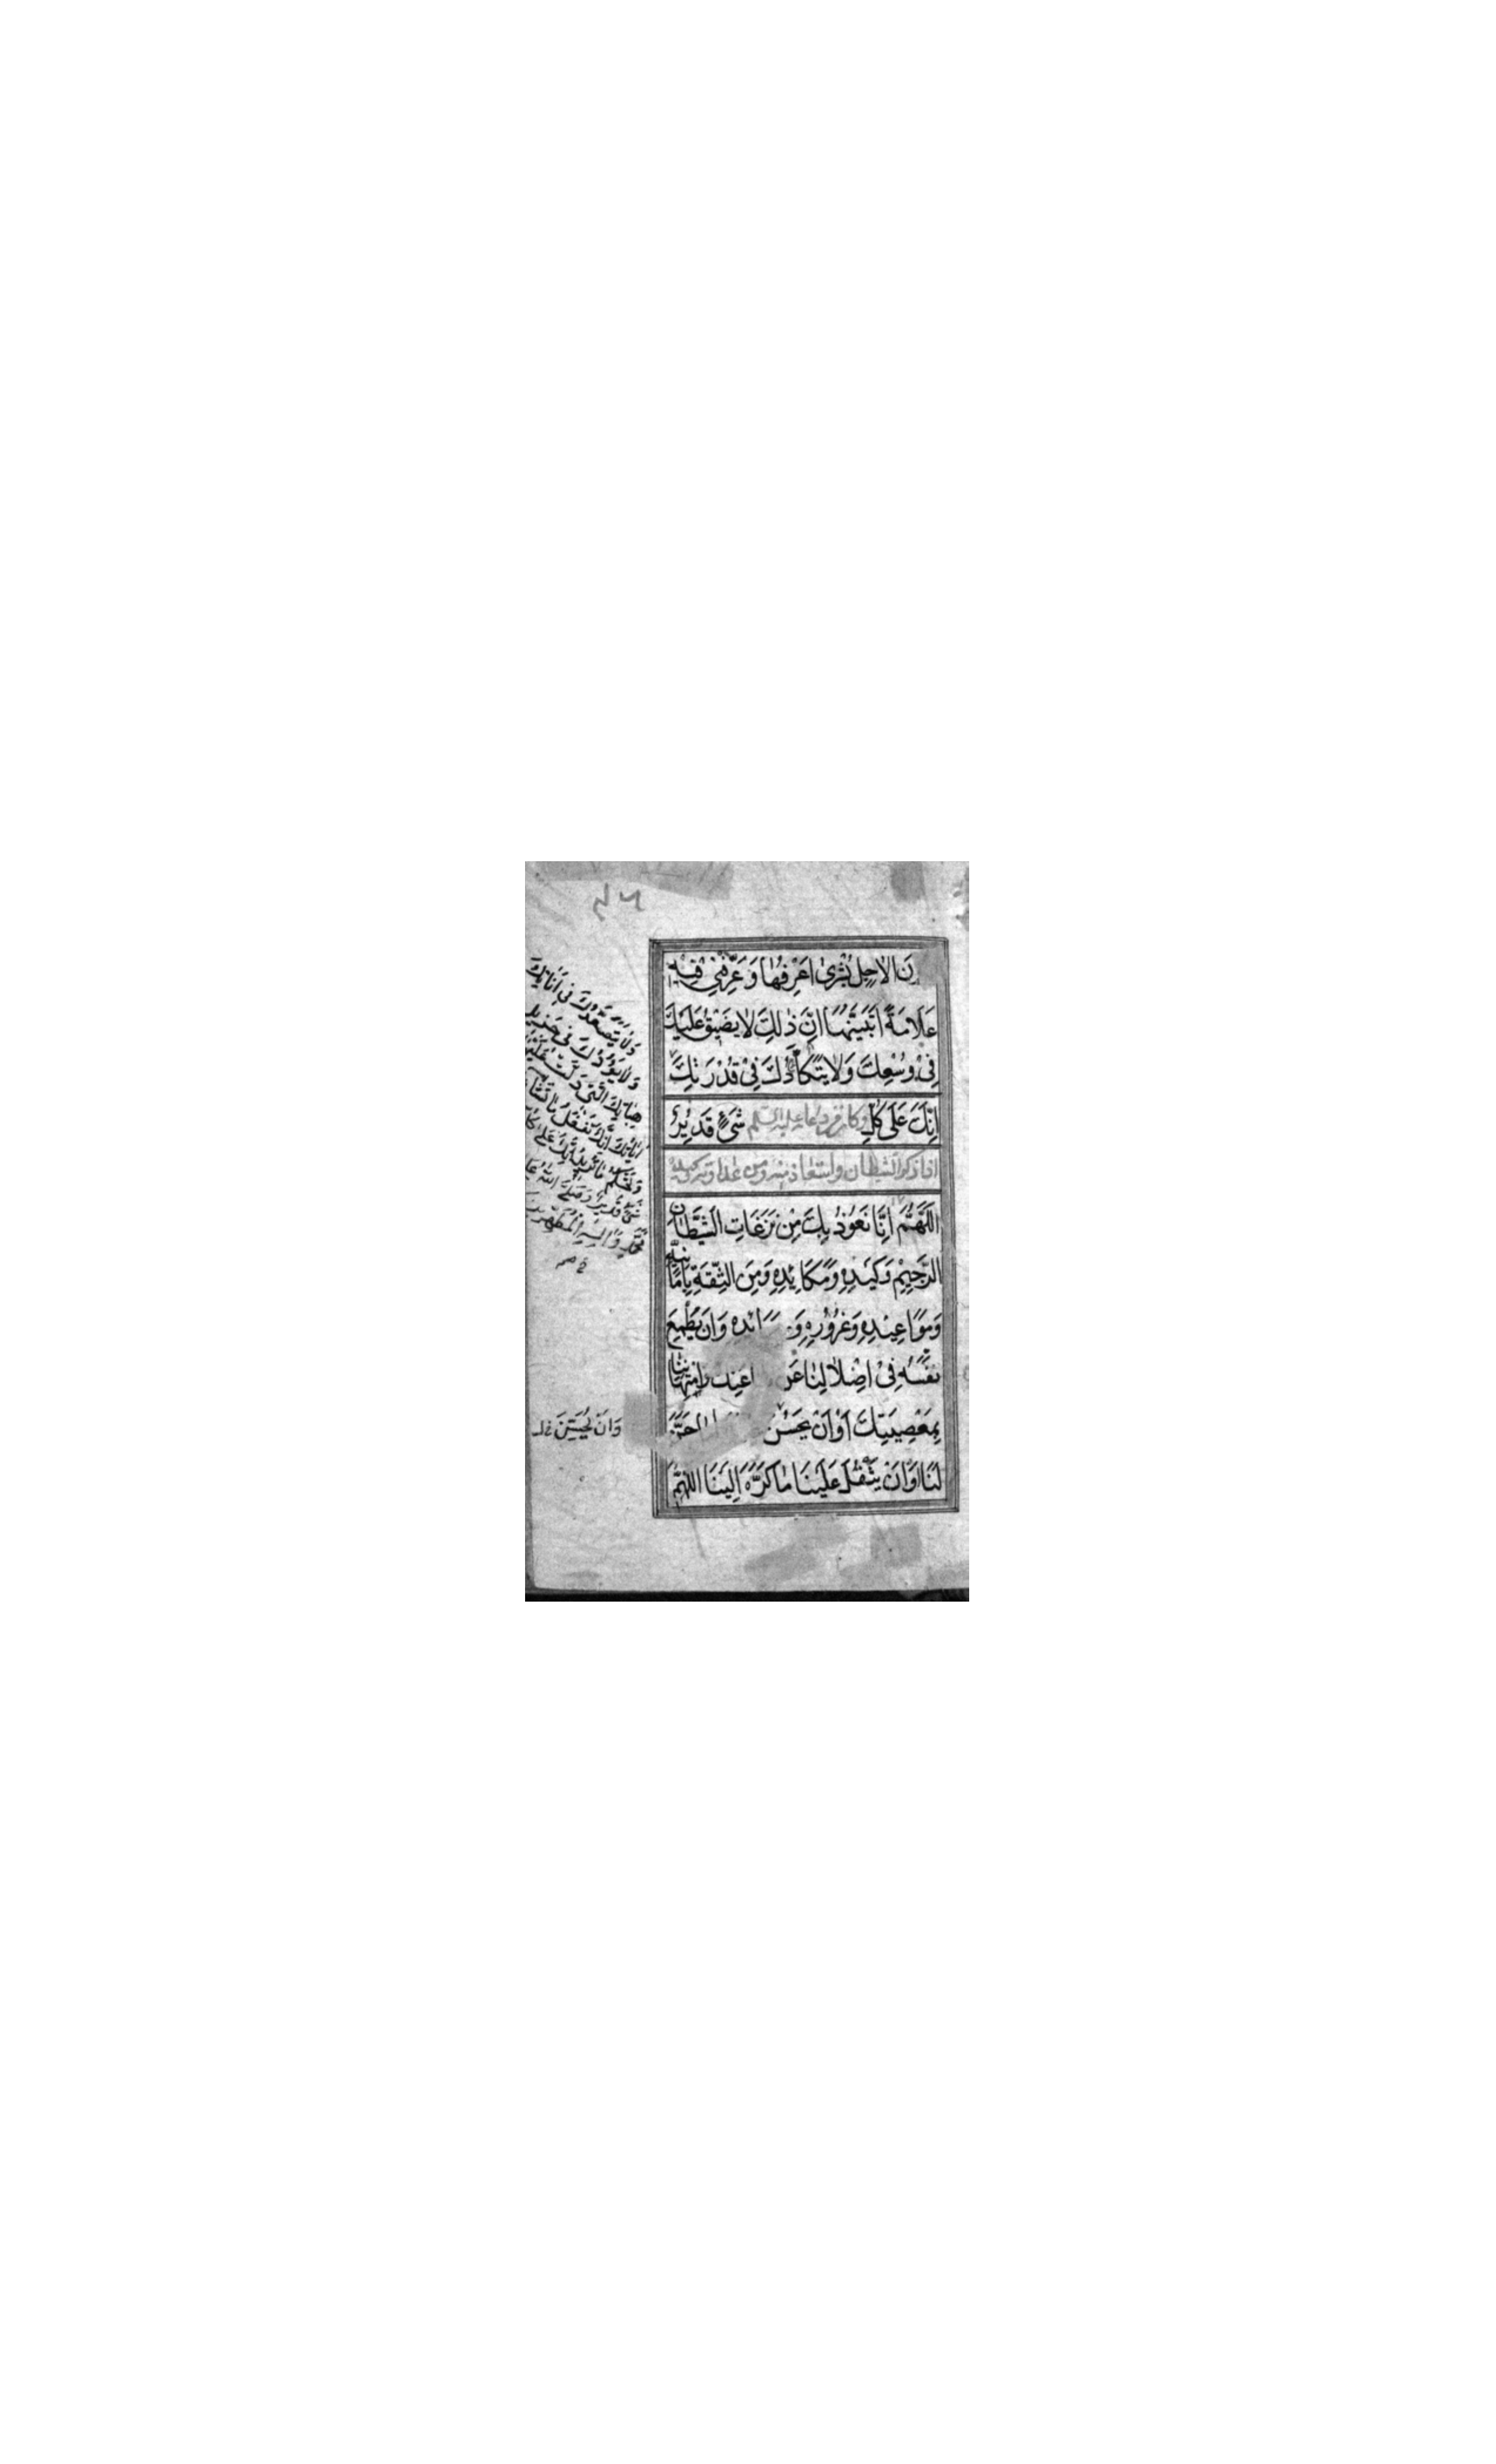 ٤٦
ن الاجل بشرى اعرفها و عرفنى فيه
عَلامَةً اَتَبَيَّنُها اِنَّ ذٰلِكَ لا يَضيقُ عَلَيْكَ
فى وُسْعِكَ وَلا يَتَكَأَّدُكَ فى قُدْرَتِكَ
اِنَّكَ عَلى كُلِّ شَىْءٍ قَديرٌ
وكان من دعائه عليه السلم
اذا ذكر الشيطان واستعاذ منه ومن عداوته وكيده
اَللّهُمَّ اِنّا نَعُوذُ بِكَ مِنْ نَزَغاتِ الشَّيْطانِ
الرَّجيمِ وَكَيْدِهِ وَمَكايِدِهِ وَمِنَ الثِّقَةِ بِاَمانِيِّهِ
وَمَواعيدِهِ وَغُرُورِهِ وَ ائدِهِ وَاَنْ يُطْمِعَ
نَفْسَهُ فى اِضْلالِنا عَنْ اعتك وَامْتِهانِنا
بِمَعْصِيَتِكَ اَوْ اَنْ يَحْسُنَ
لَنا اَوْ اَنْ يَثْقُلَ عَلَيْنا ما كَرَّهَ اِلَيْنا اللّهُمَّ
وَلا يَتَصَعَّدُكَ فى اَناتِكَ
وَلا يَؤُودُكَ فى جَزيلِ
هِباتِكَ الَّتى دَلَّتْ عَلَيْها
اياتُكَ اِنَّكَ تَفْعَلُ ما تَشاءُ
وَتَحْكُمُ ما تُريدُ اِنَّكَ عَلى كُلِّ
شَىْءٍ قَديرٌ وَصَلَّى اللهُ عَلى
مُحَمَّدٍ وَالِهِ الْمُطَهَّرينَ
وَاَنْ